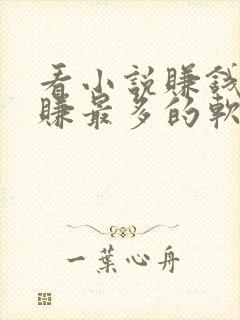 看小説賺錢
賺最多的軟
一葉心舟